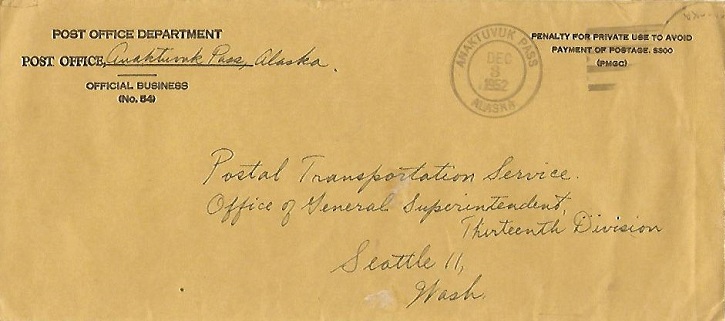 POST OFFICE DEPARTMENT
POST OFFICE, Anaktuvuk Pass, Alaska.
OFFICIAL BUSINESS
(No. 54)
ANAKTUVUK PASS
DEC
3
1952
ALASKA
PENALTY FOR PRIVATE USE TO AVOID
PAYMENT OF POSTAGE. $300
(PMGC)
Postal Transportation Service.
Office of General Superintendent,
Thirteenth Division
Seattle 11,
Wash.